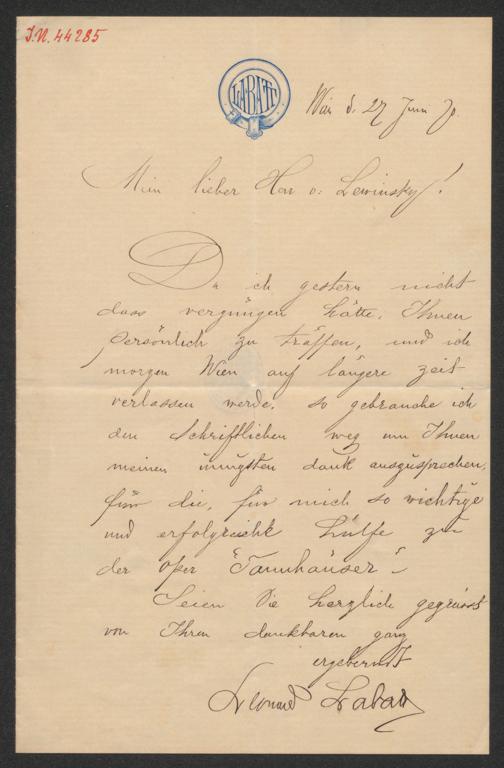 J.N. 44285
LABATT
Wien d. 27 Juni 70.
Mein lieber Herr v: Lewinsky!
Da ich gestern nicht
dass vergnügen hätte, Ihnen
persönlich zu träffen, und ich
morgen Wien auf längere zeit
verlassen werde, so gebrauche ich
den Schriftlichen weg um Ihnen
meinen innigsten dank auszusprechen,
für die, für mich so wichtige
und erfolgreiche Hülfe zu
der oper "Tannhäuser".
Seien Sie herzlich gegrüsst
von Ihren dankbaren ganz
ergebenst
Leonard Labatt